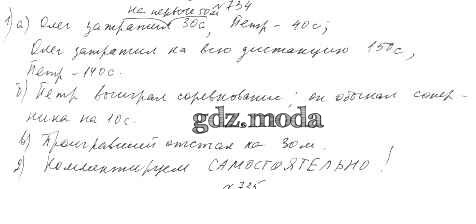 на первые 50 м №734
1) а) Олег затратил 30с, Петр - 40с;
Олег затратил на всю дистанцию 150с,
Петр - 140с.
б) Петр выиграл соревнование; он обогнал сопер-
ника на 10с.
gdz.moda
в) Проигравший отстал на 30м.
д) Комментируем САМОСТОЯТЕЛЬНО!